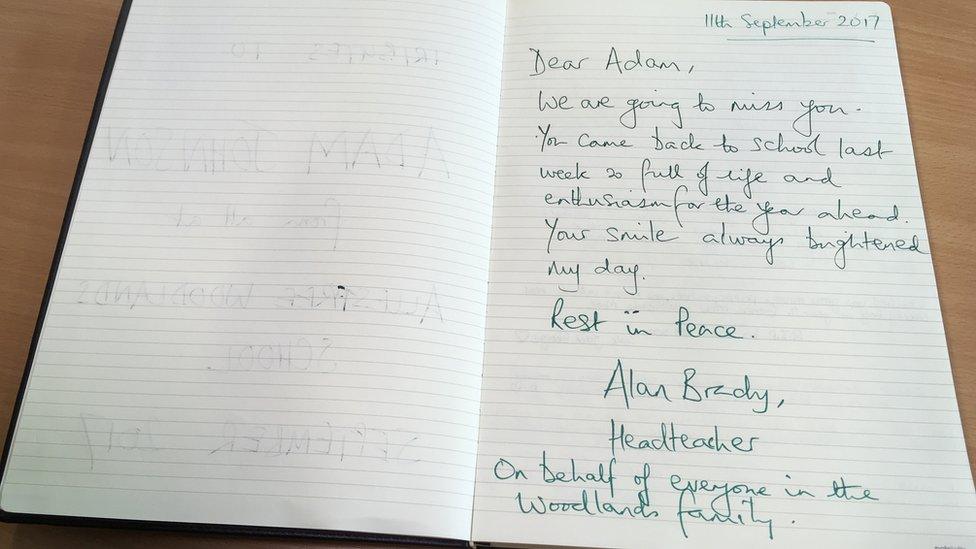 TRIBUTES TO
ADAM JOHNSON
from all at
ALLESTREE WOODLANDS
SCHOOL
SEPTEMBER 2017
11th September 2017
Dear Adam,
We are going to miss you.
You came back to school last
week so full of life and
enthusiasm for the year ahead.
Your smile always brightened
my day.
Rest in Peace.
Alan Brady,
Headteacher
On behalf of everyone in the
Woodlands family.